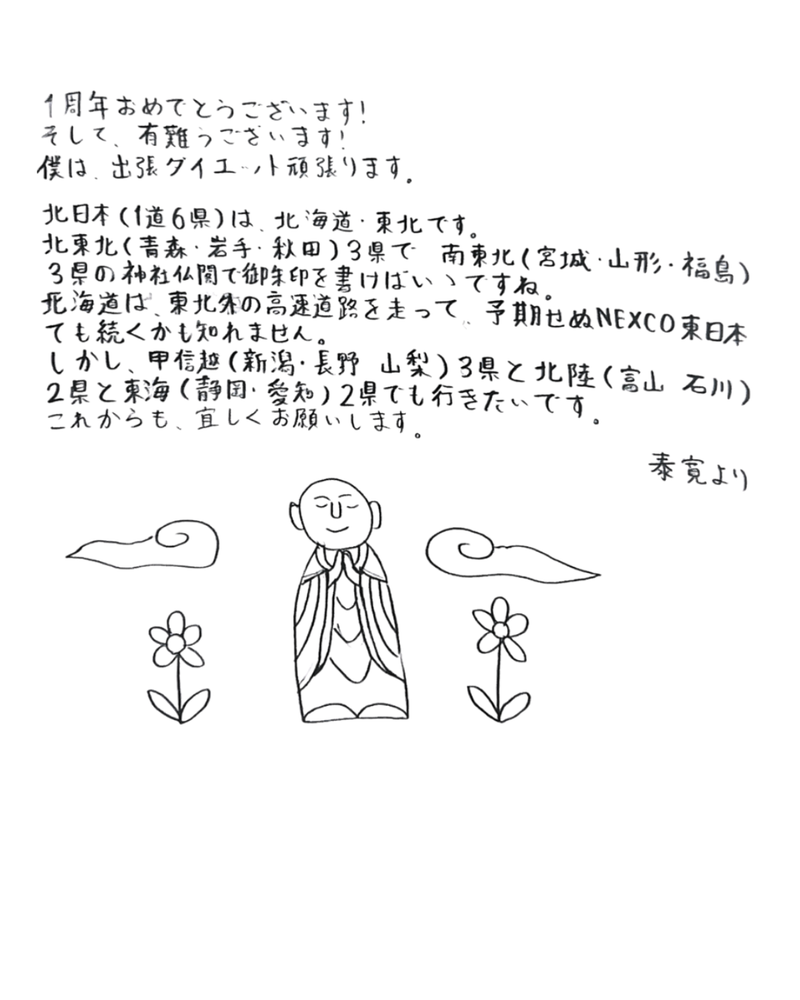 1周年おめでとうございます!
そして、有難うございます!
僕は、出張ダイエット頑張ります。
北日本(1道6県)は、北海道・東北です。
北東北(青森・岩手・秋田)3県で 南東北(宮城・山形・福島)
3県の神社仏閣で御朱印を書けばいゝですね。
北海道は、東北の高速道路を走って、予期せぬNEXCO東日本
でも続くかも知れません。
しかし、甲信越(新潟・長野 山梨)3県と北陸(富山 石川)
2県と東海(静岡・愛知)2県でも行きたいです。
これからも、宜しくお願いします。
泰寛より